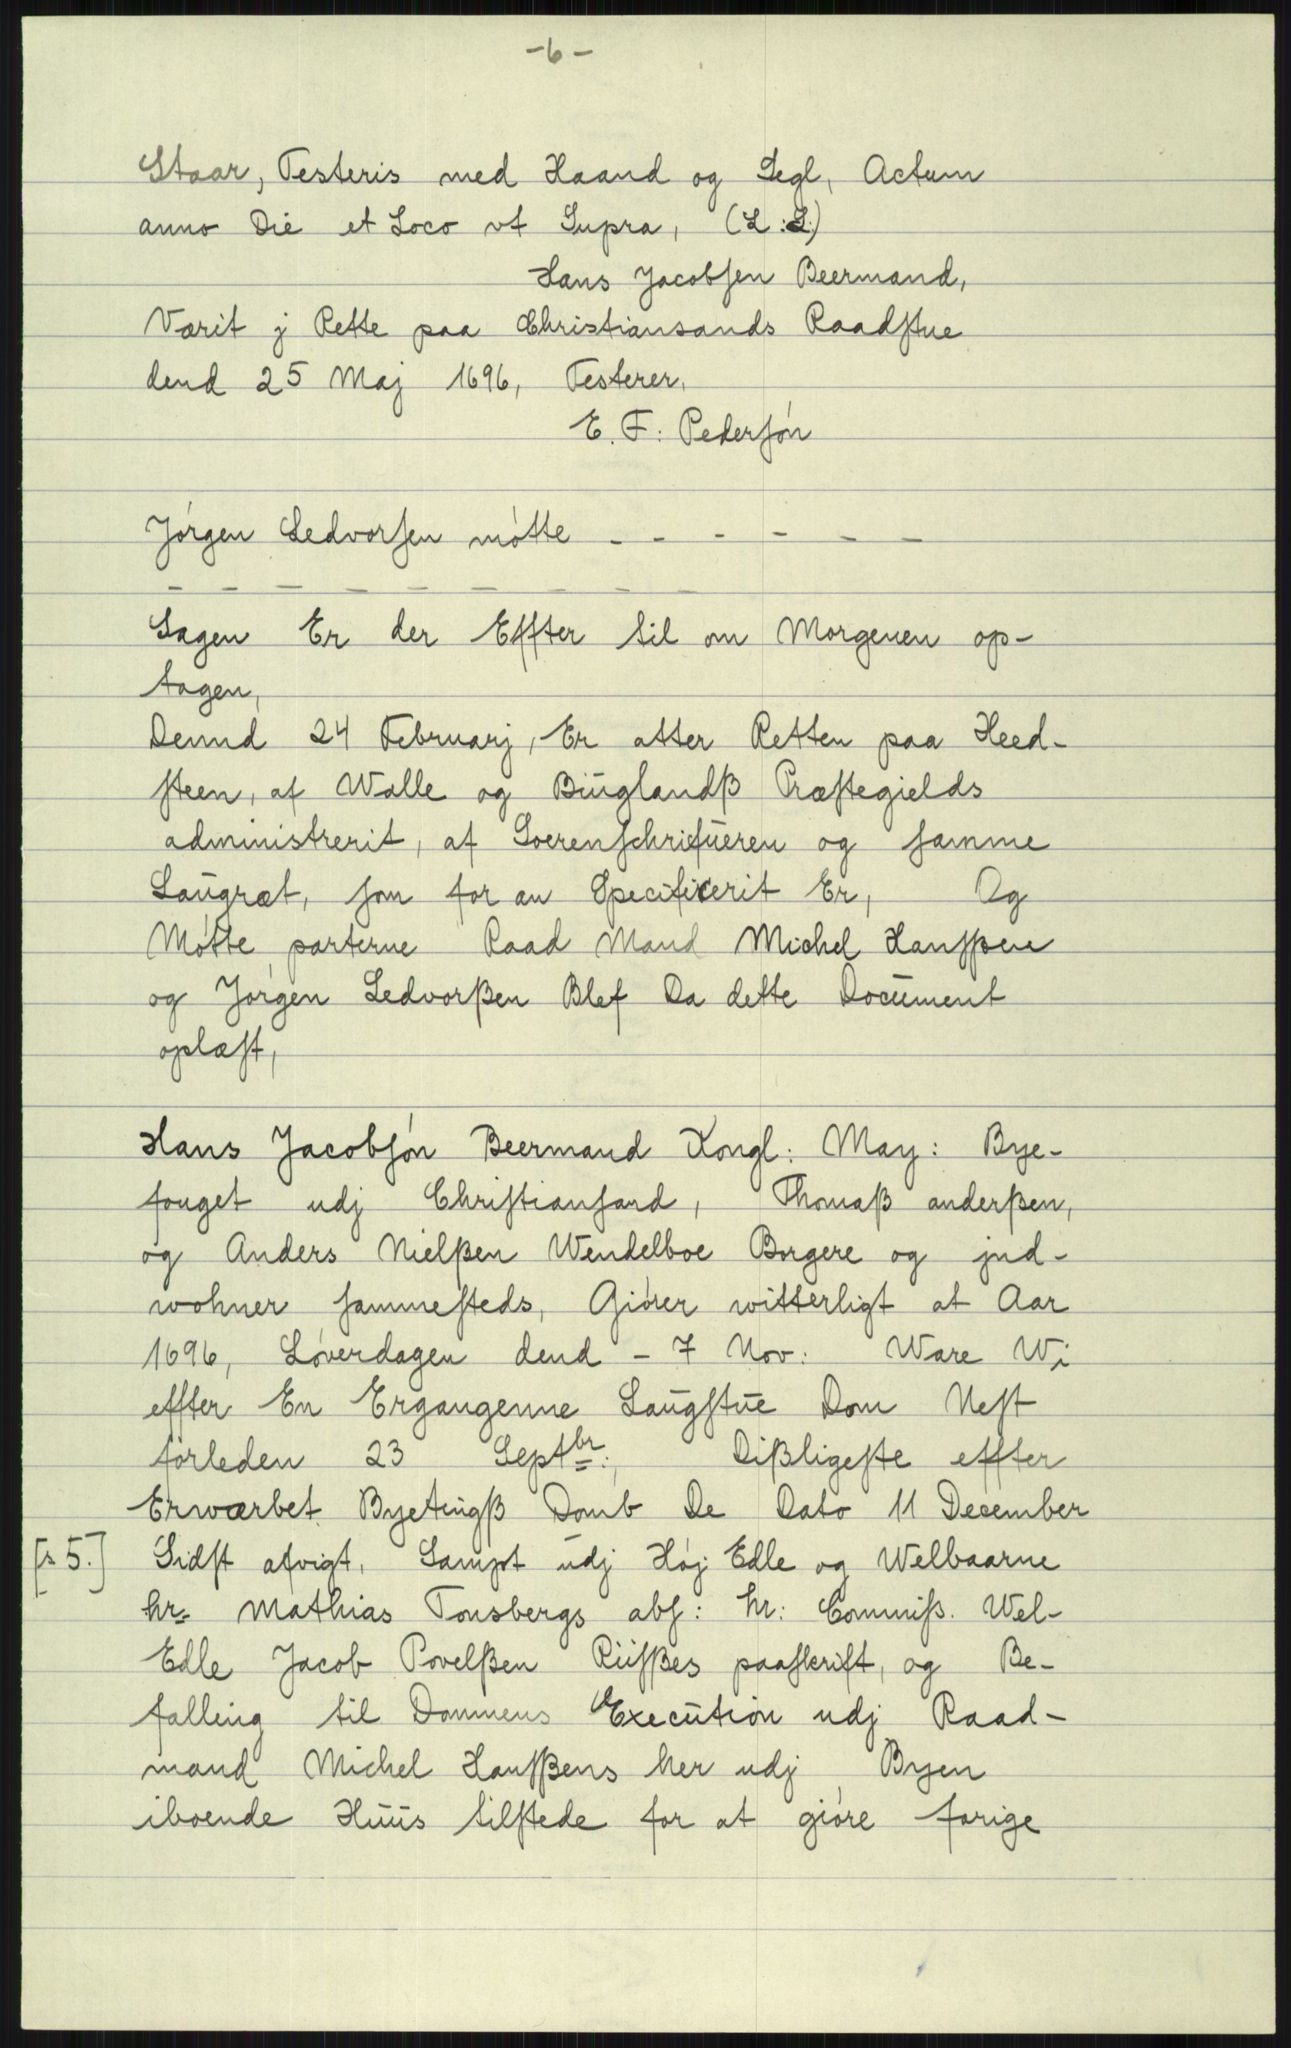 -6-
Staar, Testeris med Haand og Segl, Actum
anno Die et Loco vt Supra, (L:S:)
Hans Jacobsen Beermand,
Værit j Rette paa Christiansands Raadstue
dend 25 Maj 1696, Testerer,
E. F: Pedersøn
Jørgen Sedvorsen møtte - - - - - -
- - - - - - - - -
Sagen Er der Effter til om Morgenen op-
tagen,
Dennd 24 Februarj, Er atter Retten paa Heed-
steen, af Walle og Büglandß Præstegields
administrerit, af Soerenschrifüeren og samme
Laugræt, som for an Specificerit Er, Og
Møtte parterne Raad Mand Michel Hanssøn
og Jørgen Sedvorßen Blef Da dette Document
oplæst,
Hans Jacobsøn Beermand Kongl: May: Bye-
fouget udj Christiansand, Thomaß anderßen,
og Anders Nielßen Wendelboe Borgere og jnd-
wohner sammesteds, Giører witterligt at Aar
1696, Løverdagen dend - 7 Nov: Ware Wi
effter En Ergangenne Laugstüe Dom Nest
forleden 23 Septbr:, Dißligeste effter
Erværbet Byetingß Domb De Dato 11 December
[s 5.] Sidst afvigt, Sampt udj Høj Edle og Welbaarne
hr. Mathias Tonsbergs abs: hr: Commiß. Wel-
Edle Jacob Povelßen Rüsßes paaskrift, og Be-
falling til Dommens Execution udj Raad-
mand Michel Hansßens her udj Byen
iboende Hüüs tilstede for at giøre forige